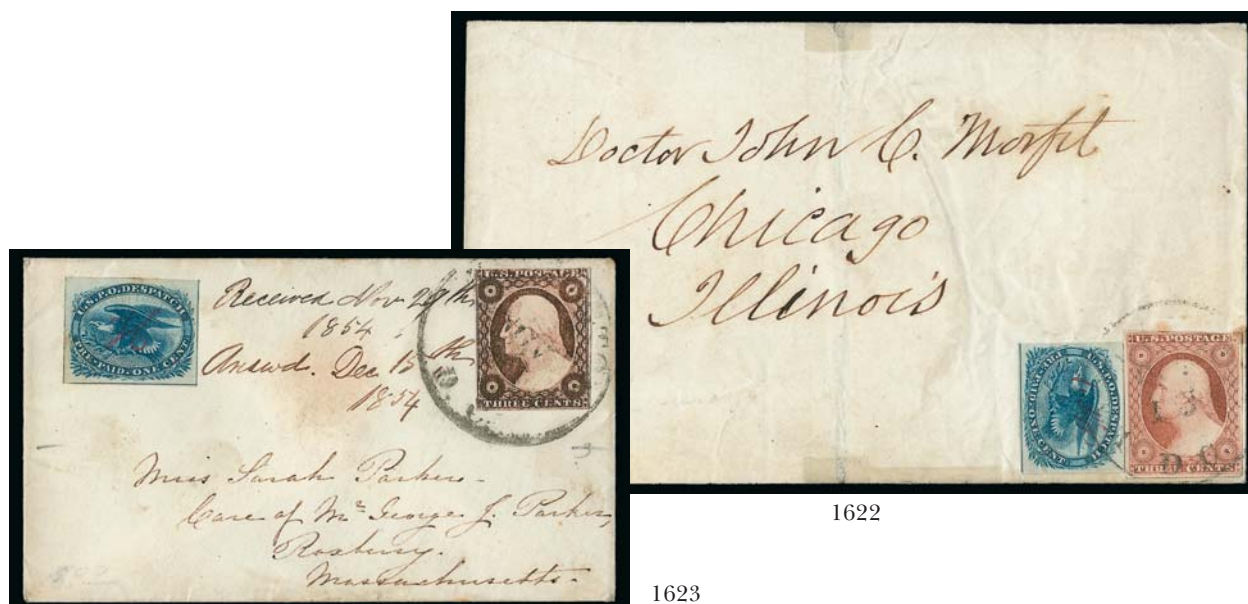 Doctor John C. Morfit
Chicago
Illinois
U.S.P.O. DESPATCH
PRE-PAID. ONE CENT.
U.S. POSTAGE
THREE CENTS
13
D.C.
1622
U.S.P.O. DESPATCH
PRE-PAID. ONE CENT.
Received Nov. 29th
1854
Answd. Dec. 15th
1854
U.S. POSTAGE
THREE CENTS
Miss Sarah Parker
Care of Mr George J. Parker,
Roxbury.
Massachusetts.
1623